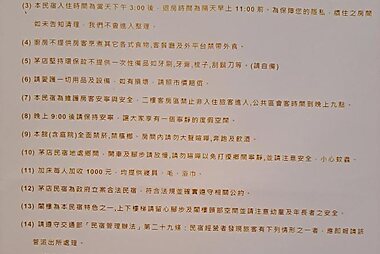 (3) 本民宿入住時間為當天下午 3:00 後，退房時間為隔天早上 11:00 前。為保障您的隱私，續住之房間
如未告知清理，我們不會進入整理。
(4) 廚房不提供房客烹煮其它各式食物，客餐廳及外平台禁帶外食。
(5) 茅店堅持環保故不提供一次性備品如牙刷，牙膏，梳子，刮鬍刀等。(請自備)
(6) 請愛護一切用品及設備，如有損壞，請照市價賠償。
(7) 本民宿為維護房客安寧與安全，二樓客房區禁止非入住旅客進入，公共區會客時間到晚上九點。
(8) 晚上 9:00 後請保持安寧，讓大家享有一個寧靜的度假空間。
(9) 本館(含庭院)全面禁菸，禁檳榔，房間內請勿大聲喧嘩，奔跑及飲酒。
(10) 茅店民宿地處鄉間，開車及腳步請放慢，請勿喧嘩以免打擾鄉間寧靜，並請注意安全，小心蚊蟲。
(11) 加床每人加收 1000 元，均提供寢具，毛，浴巾。
(12) 茅店民宿為政府立案合法民宿，符合法規並確實遵守相關公約。
(13) 閣樓為本民宿特色之一，上下樓梯請留心腳步及閣樓頭部空間並請注意幼童及年長者之安全。
(14) 請遵守交通部「民宿管理辦法」第二十九條：民宿經營者發現旅客有下列情形之一者，應即報請該
管派出所處理。